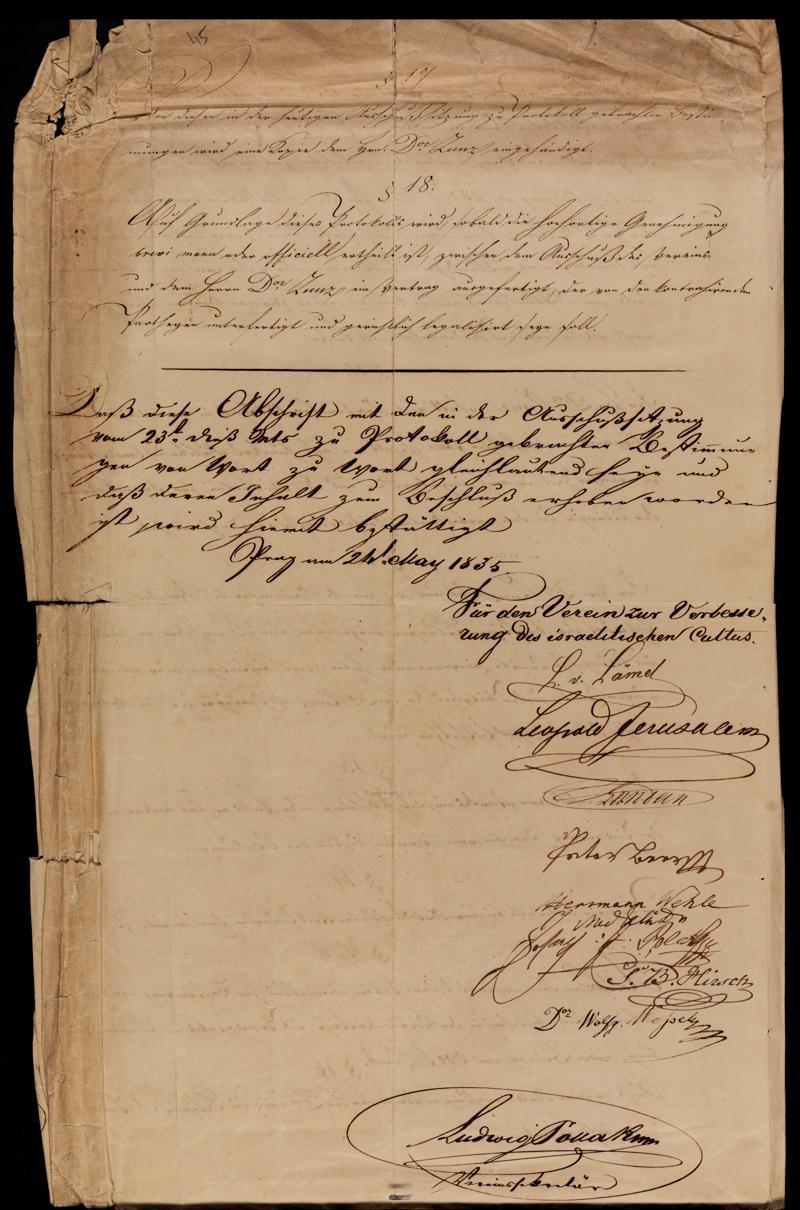 45
§ 17
Von diesen in der heutigen Ausschuß Sitzung zu Protokoll gebrachten Bestim-
mungen wird eine Kopie dem Hrn. Dor Zunz eingehändigt.
§ 18.
Auf Grundlage dieses Protokolls wird, sobald die hochortige Genehmigung
brevi manu oder officiell ertheilt ist, zwischen dem Ausschuß des Vereins
und dem Herrn Dor Zunz ein Vertrag ausgefertigt, der von den kontrahirenden
Partheyen unterfertigt und gerichtlich legalisirt seyn soll.
Daß diese Abschrift mit den in der Ausschußsitzung
vom 23t dieß Mts zu Protokoll gebrachten Bestimmun-
gen von Wort zu Wort gleichlautend seye und
daß deren Inhalt zum Beschluß erhoben worden
ist wird hiemit bestättigt
Prag am 24t May 1835
Für den Verein zur Verbesse-
rung des israelitischen Cultus.
L. v. Lämel
Leopold Jerusalem
Landau
Herrmann Wehle
S. B. Hirsch
Dor Wolfg. Wessely
Ludwig Pollak
Vereinssekretär